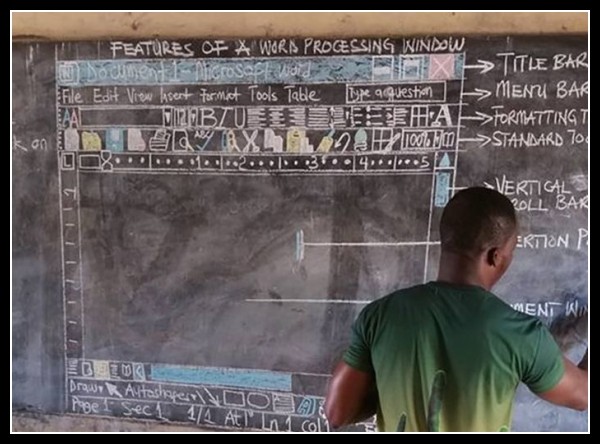 FEATURES OF A WORD PROCESSING WINDOW
Document 1 - Microsoft Word
TITLE BAR
File Edit View Insert Format Tools Table
Type a question
MENU BAR
AA
12
B I U
A
FORMATTING T
k on
ABC
100%
STANDARD TO
L
1 2 3 4 5
VERTICAL S
ROLL BAR
ERTION P
MENT WIN
Draw
Autoshapes
A
Page 1 Sec 1 1/1 At 1" Ln 1 Col